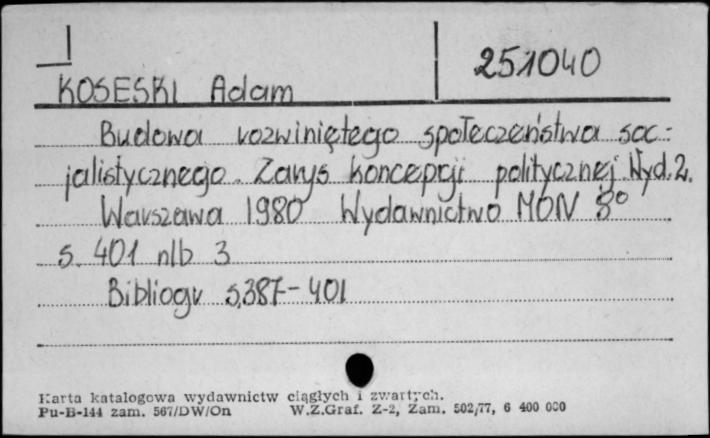 251040
KOSESKI Adam
Budowa rozwiniętego społeczeństwa soc-
jalistycznego. Zarys koncepcji politycznej. Wyd. 2.
Warszawa 1980 Wydawnictwo MON 8°
s. 401 nlb 3
Bibliogr s. 387-401
Karta katalogowa wydawnictw ciągłych i zwartych.
Pu-B-144 zam. 567/DW/On W.Z.Graf. Z-2, Zam. 502/77, 6 400 000